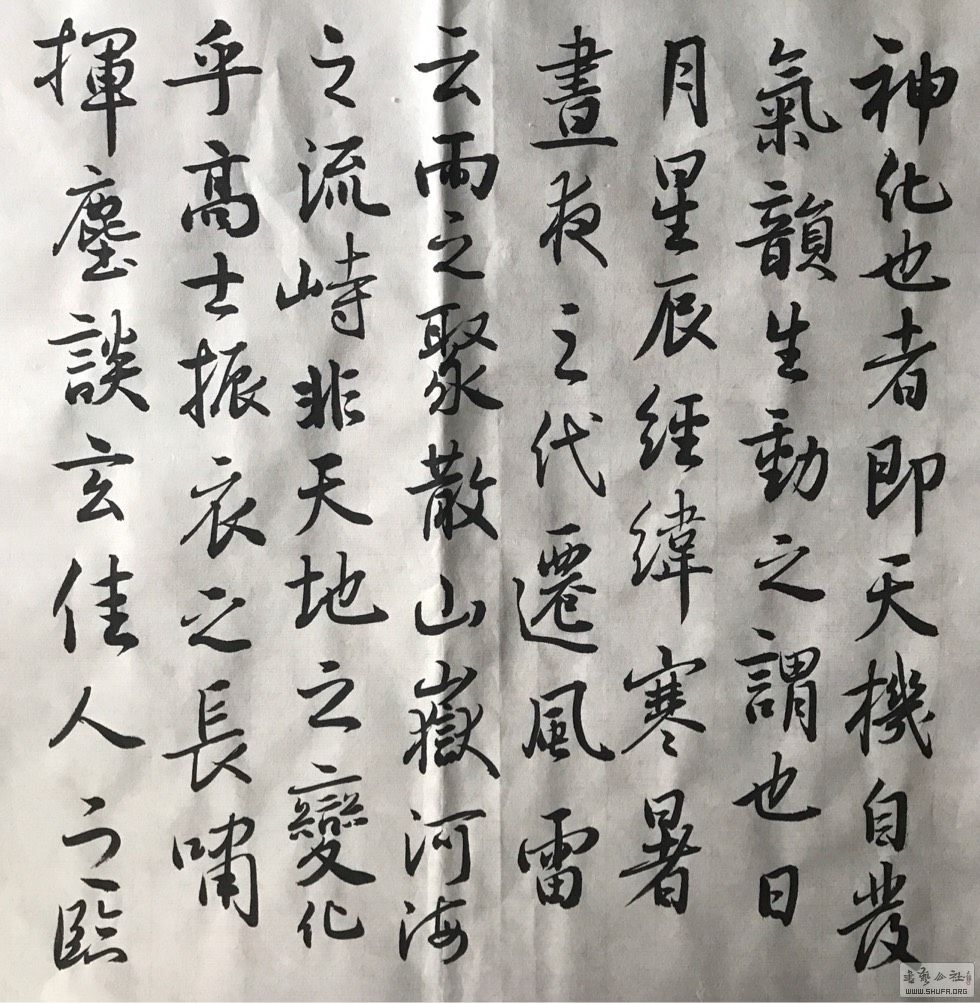 神化也者即天機自發
氣韻生動之謂也日
月星辰經緯寒暑
晝夜之代遷風雷
云雨之聚散山嶽河海
之流峙非天地之變化
乎高士振衣之長嘯
揮塵談玄佳人之臨
書艺公社
WWW.SHUFA.ORG